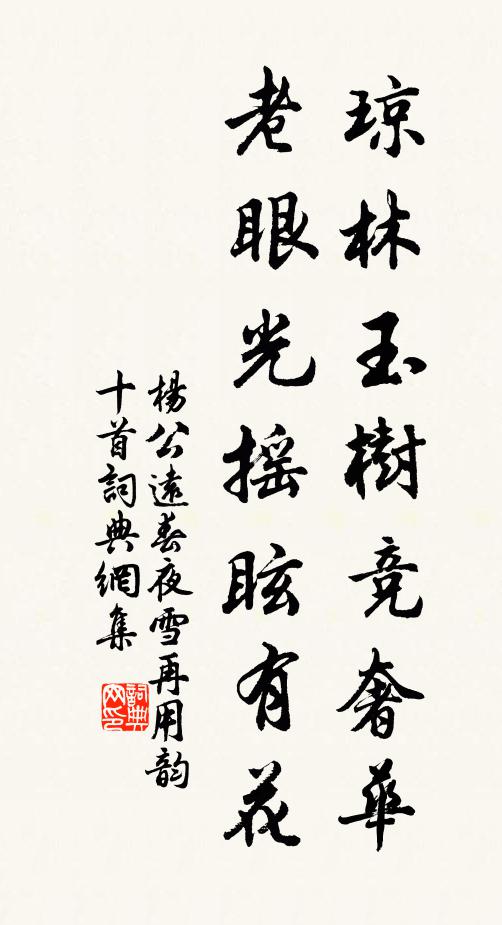 琼林玉樹竞奢華
老眼光摇眩有花
楊公遠春夜雪再用韵
十首詞典網集
詞典
网印